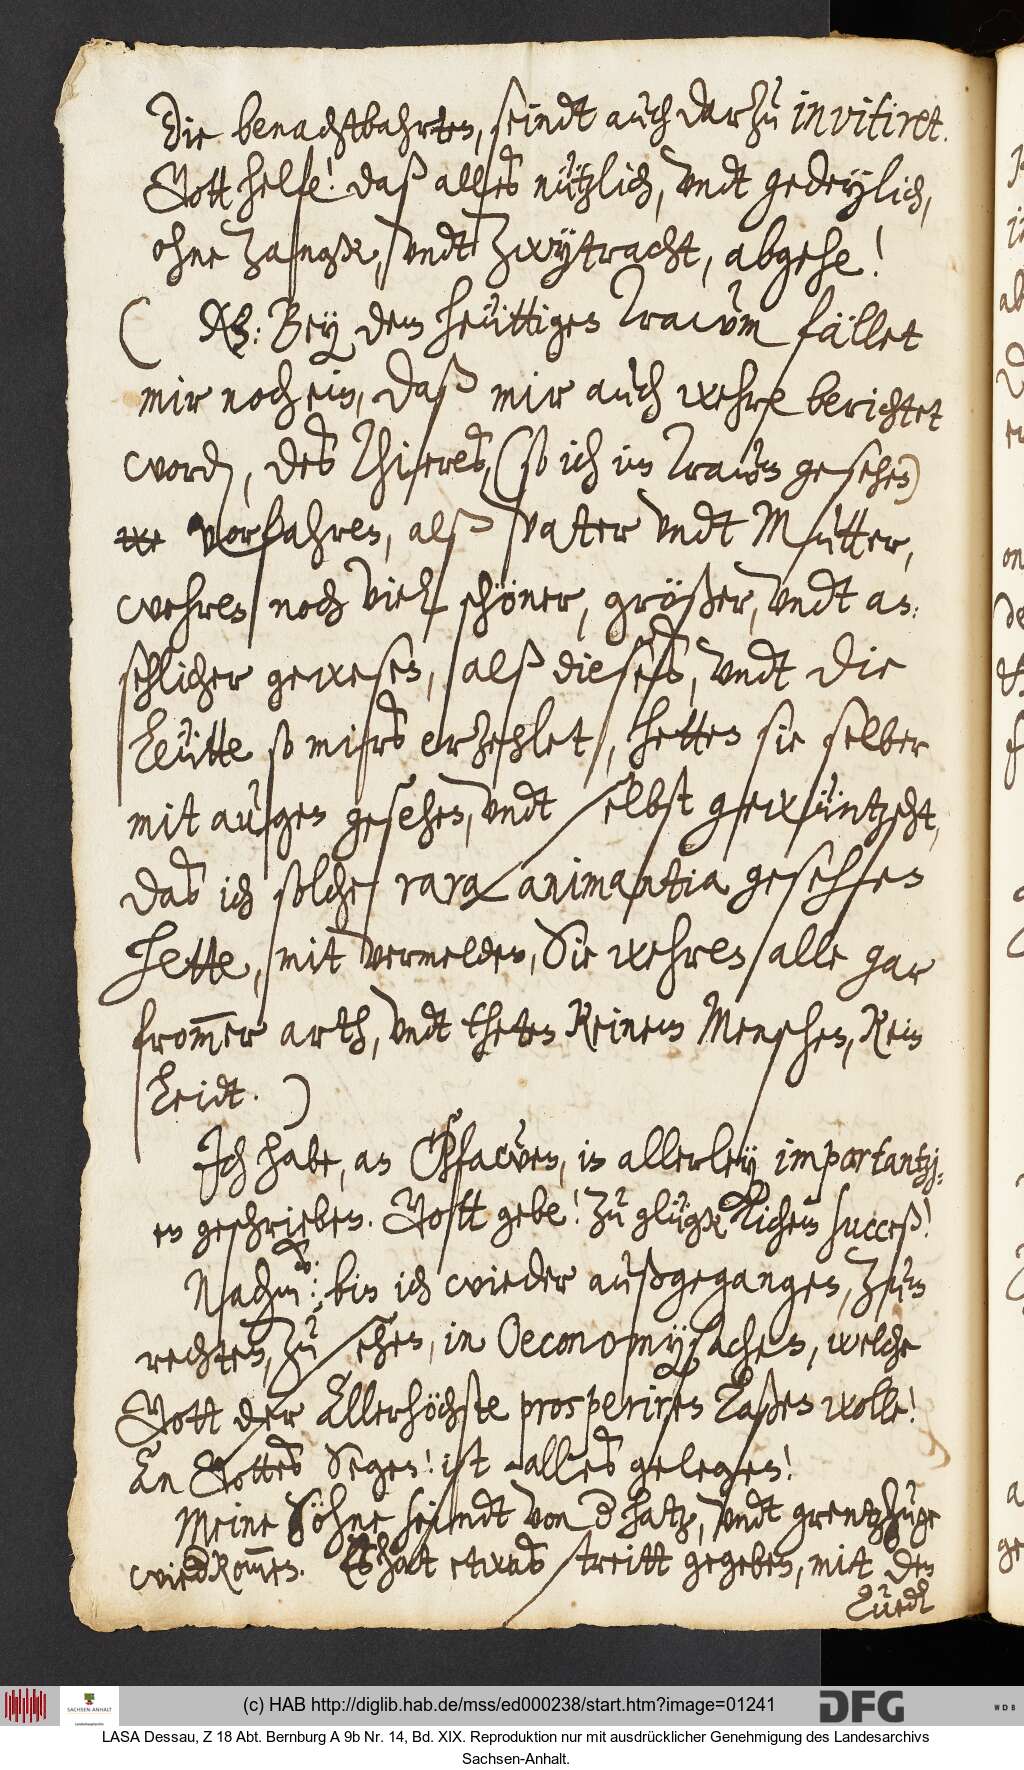 Die benachtbahrten, seindt auch darzu invitiret.
Gott helfe! daß alles nützlich, undt gedeylich,
ohne Zangk, undt Zwytracht, abgehe!
( NB: Bey dem heüttigen Traum fället
mir noch ein, daß mir auch wehre berichtet
word, des Thieres, (so ich im Traum gesehen)
we vorfahren, alß vater undt Mutter,
wehren noch viel schöner, größer, undt an-
sehlicher gewesen, alß dieses, undt die
Leütte so mirs erzehlet, hetten sie selber
mit augen gesehen, undt selbst gewüntzscht,
das ich solche rara animantia gesehen
hette, mit vermelden, Sie wehren alle gar
from̅er arth, undt theten keinem Menschen, kein
Leidt. )
Ich habe, an Pfawen, in allerley importantzi-
en geschrieben. Gott gebe! zu glügklichem succeß!
Nachm: bin ich wieder außgegangen, zum
rechten, zu sehen, in Oeconomysachen, welche
Gott der Allerhöchste prosperiren laßen wolle!
An Gottes Segen! ist alles gelegen!
Meine Söhne seindt von d hatz, undt grentzzuge
wied kom̅en. Es hat etwas streitt gegeben, mit den
Leüd
(c) HAB http://diglib.hab.de/mss/ed000238/start.htm?image=01241
SACHSEN-ANHALT
DFG
WDB
LASA Dessau, Z 18 Abt. Bernburg A 9b Nr. 14, Bd. XIX. Reproduktion nur mit ausdrücklicher Genehmigung des Landesarchivs
Sachsen-Anhalt.